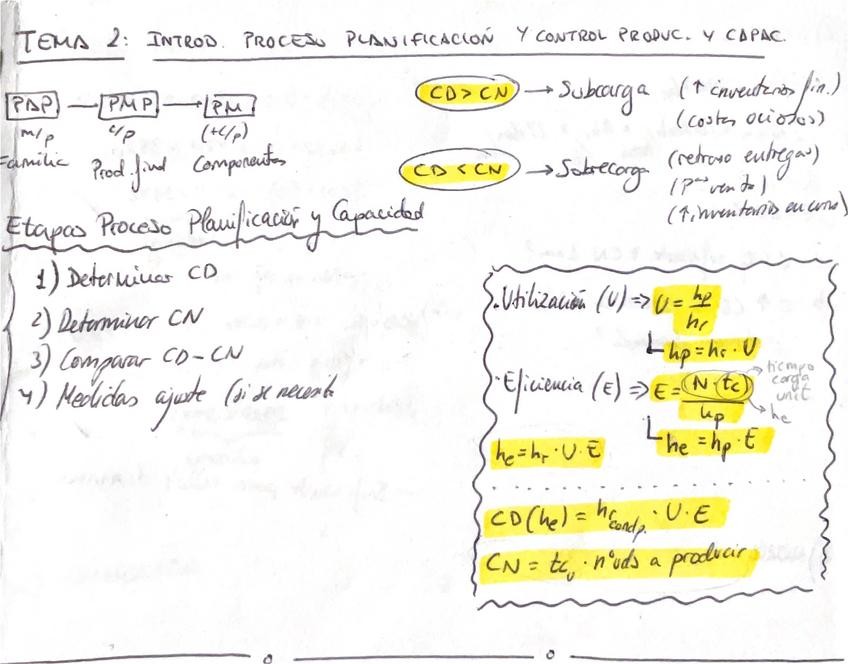 TEMA 2: INTROD. PROCESO PLANIFICACIÓN Y CONTROL PRODUC. Y CAPAC.
PAP → PMP → PM
m/p c/p (+c/p)
Familia Prod. final Componentes
CD > CN → Subcarga (↑ inventarios fin.)
(costes ociosos)
CD < CN → Sobrecarga (retraso entregas)
(Pᵃˢ venta)
(↑ inventarios en curso)
Etapas Proceso Planificación y Capacidad
1) Determinar CD
2) Determinar CN
3) Comparar CD-CN
4) Medidas ajuste (si se necesita
· Utilización (U) ⇒ U = hp/hr
hp = hr · U
· Eficiencia (E) ⇒ E = (N · tc)/hp
→ tiempo carga unit
→ he
he = hp · E
he = hr · U · E
CD (he) = hr condp. · U · E
CN = tcᵤ · nº uds a producir